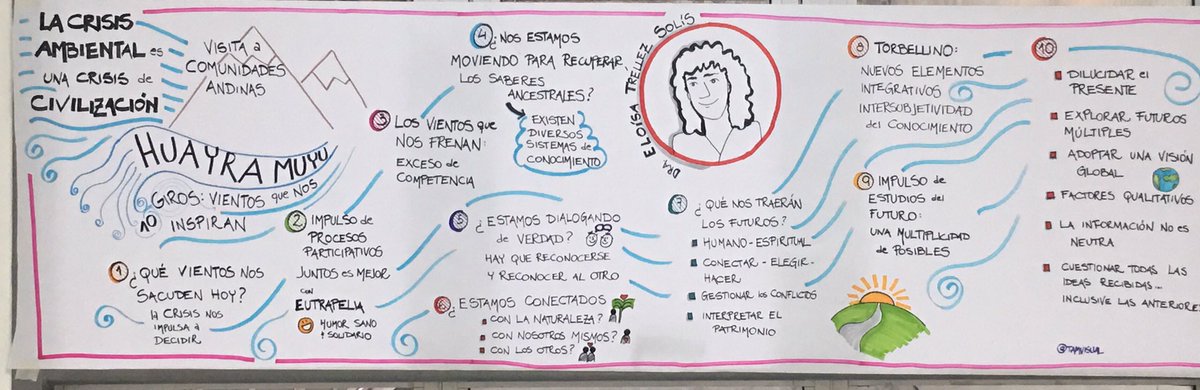 LA CRISIS
AMBIENTAL es
UNA CRISIS de
CIVILIZACIÓN
VISITA a
COMUNIDADES
ANDINAS
HUAYRA MUYU
GIROS: VIENTOS que NOS
INSPIRAN
10
1 ¿QUÉ VIENTOS NOS
SACUDEN HOY?
la CRISIS NOS
IMPULSA a
DECIDIR
2 IMPULSO de
PROCESOS
PARTICIPATIVOS
JUNTOS es MEJOR
con
EUTRAPELIA
HUMOR SANO
y SOLIDARIO
3 LOS VIENTOS que
NOS FRENAN:
EXCESO de
COMPETENCIA
4 ¿NOS ESTAMOS
MOVIENDO PARA RECUPERAR
LOS SABERES
ANCESTRALES?
EXISTEN
DIVERSOS
SISTEMAS de
CONOCIMIENTO
5 ¿ESTAMOS DIALOGANDO
de VERDAD?
HAY QUE RECONOCERSE
Y RECONOCER AL OTRO
6 ¿ESTAMOS CONECTADOS
CON LA NATURALEZA?
CON NOSOTROS MISMOS?
CON LOS OTROS?
DRA. ELOÍSA TRELLEZ SOLÍS
7 ¿QUÉ NOS TRAERÁN
LOS FUTUROS?
HUMANO-ESPIRITUAL
CONECTAR-ELEGIR-
HACER
GESTIONAR los CONFLICTOS
INTERPRETAR EL
PATRIMONIO
8 TORBELLINO:
NUEVOS ELEMENTOS
INTEGRATIVOS
INTERSUBJETIVIDAD
del CONOCIMIENTO
9 IMPULSO de
ESTUDIOS del
FUTURO:
UNA MULTIPLICIDAD
de POSIBLES
10
DILUCIDAR el
PRESENTE
EXPLORAR FUTUROS
MÚLTIPLES
ADOPTAR UNA VISIÓN
GLOBAL
FACTORES QUALITATIVOS
LA INFORMACIÓN NO es
NEUTRA
CUESTIONAR TODAS LAS
IDEAS RECIBIDAS...
INCLUSIVE LAS ANTERIORES